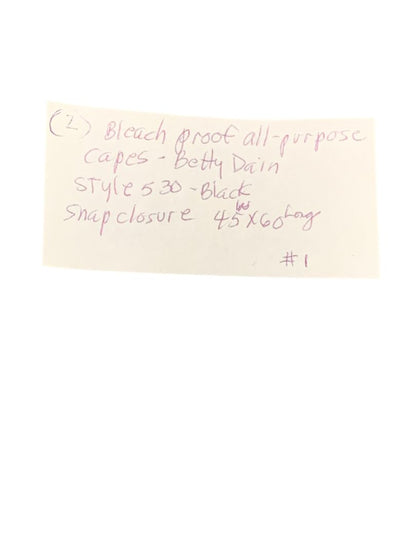 (2) Bleach proof all-purpose
Capes - Betty Dain
Style 530 - Black
Snap closure 45W X 60 Long
#1